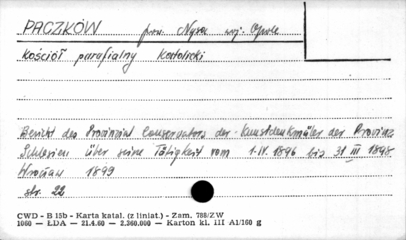 PACZKÓW pow. Nysa woj. Opole
Kościół parafialny Katolicki
Bericht des Provinzial Conservators der Kunstdenkmäler der Provinz
Schlesien über seine Tätigkeit vom 1.IV.1896 bis 31 III 1898
Wrocław 1899
str. 22
CWD - B 15b - Karta katal. (z liniat.) - Zam. 788/ZW
1060 — ŁDA — 21.4.60 - 2.260.000 — Karton kl. III A1/160 g